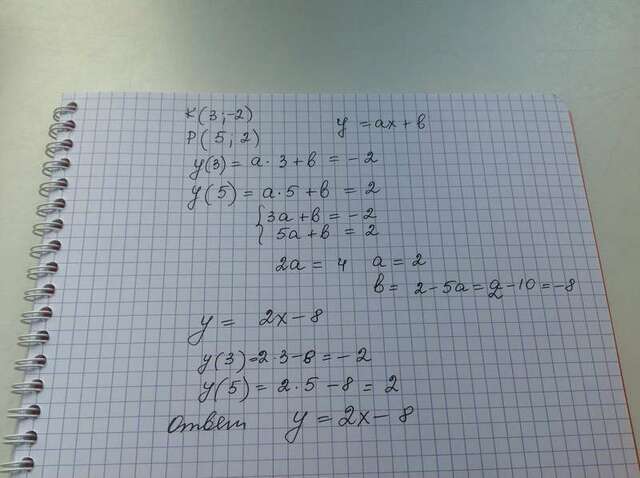 K(3;-2)
y = ax + в
P(5; 2)
y(3) = a·3 + в = -2
y(5) = a·5 + в = 2
{3a + в = -2
5a + в = 2
2a = 4 a = 2
в = 2 - 5a = 2 - 10 = -8
y = 2x - 8
y(3) = 2·3 - 8 = -2
y(5) = 2·5 - 8 = 2
Ответ y = 2x - 8